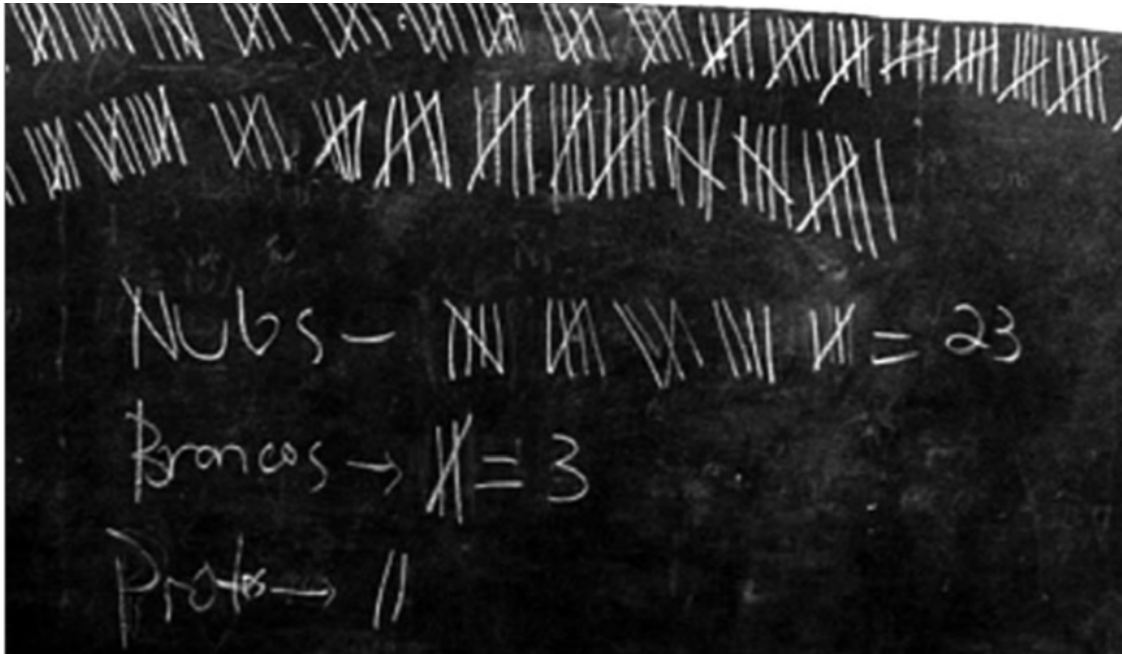 Nubs - 𝍸 𝍸 𝍸 𝍸 ||| = 23
Broncos → ||| = 3
Protos → ||